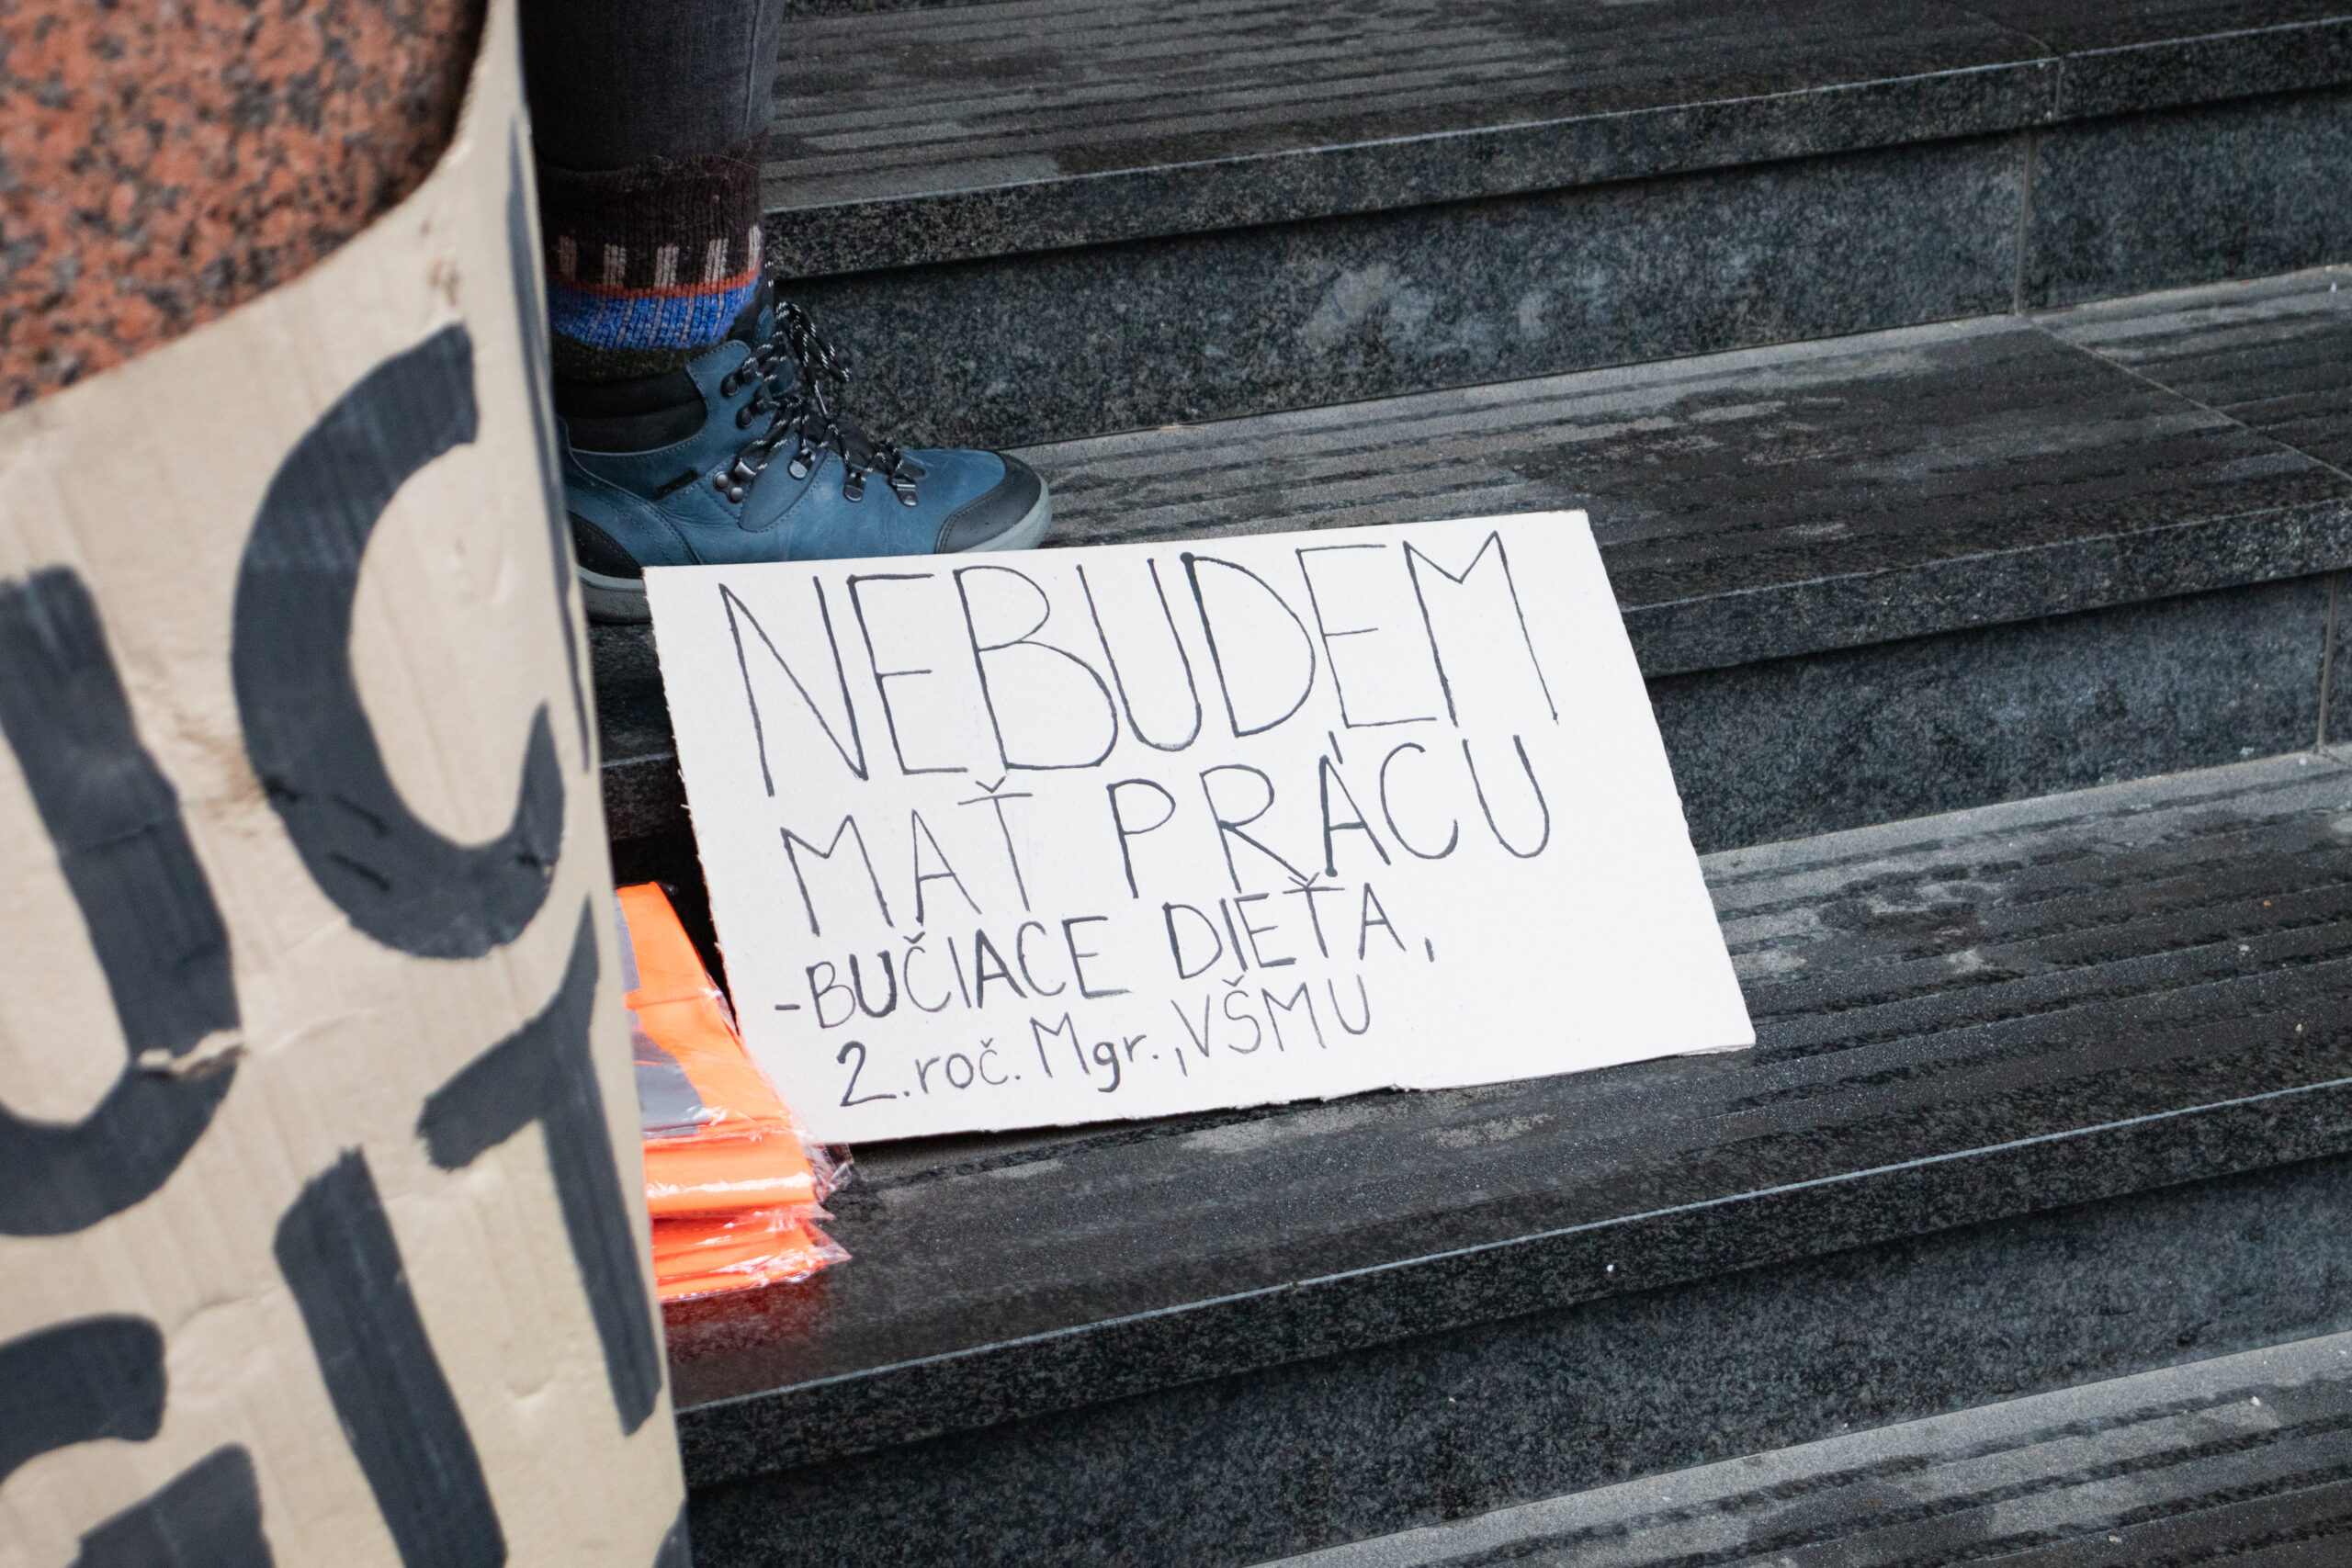 NEBUDEM
MAŤ PRÁCU
-BUČIACE DIEŤA,
2. roč. Mgr., VŠMU